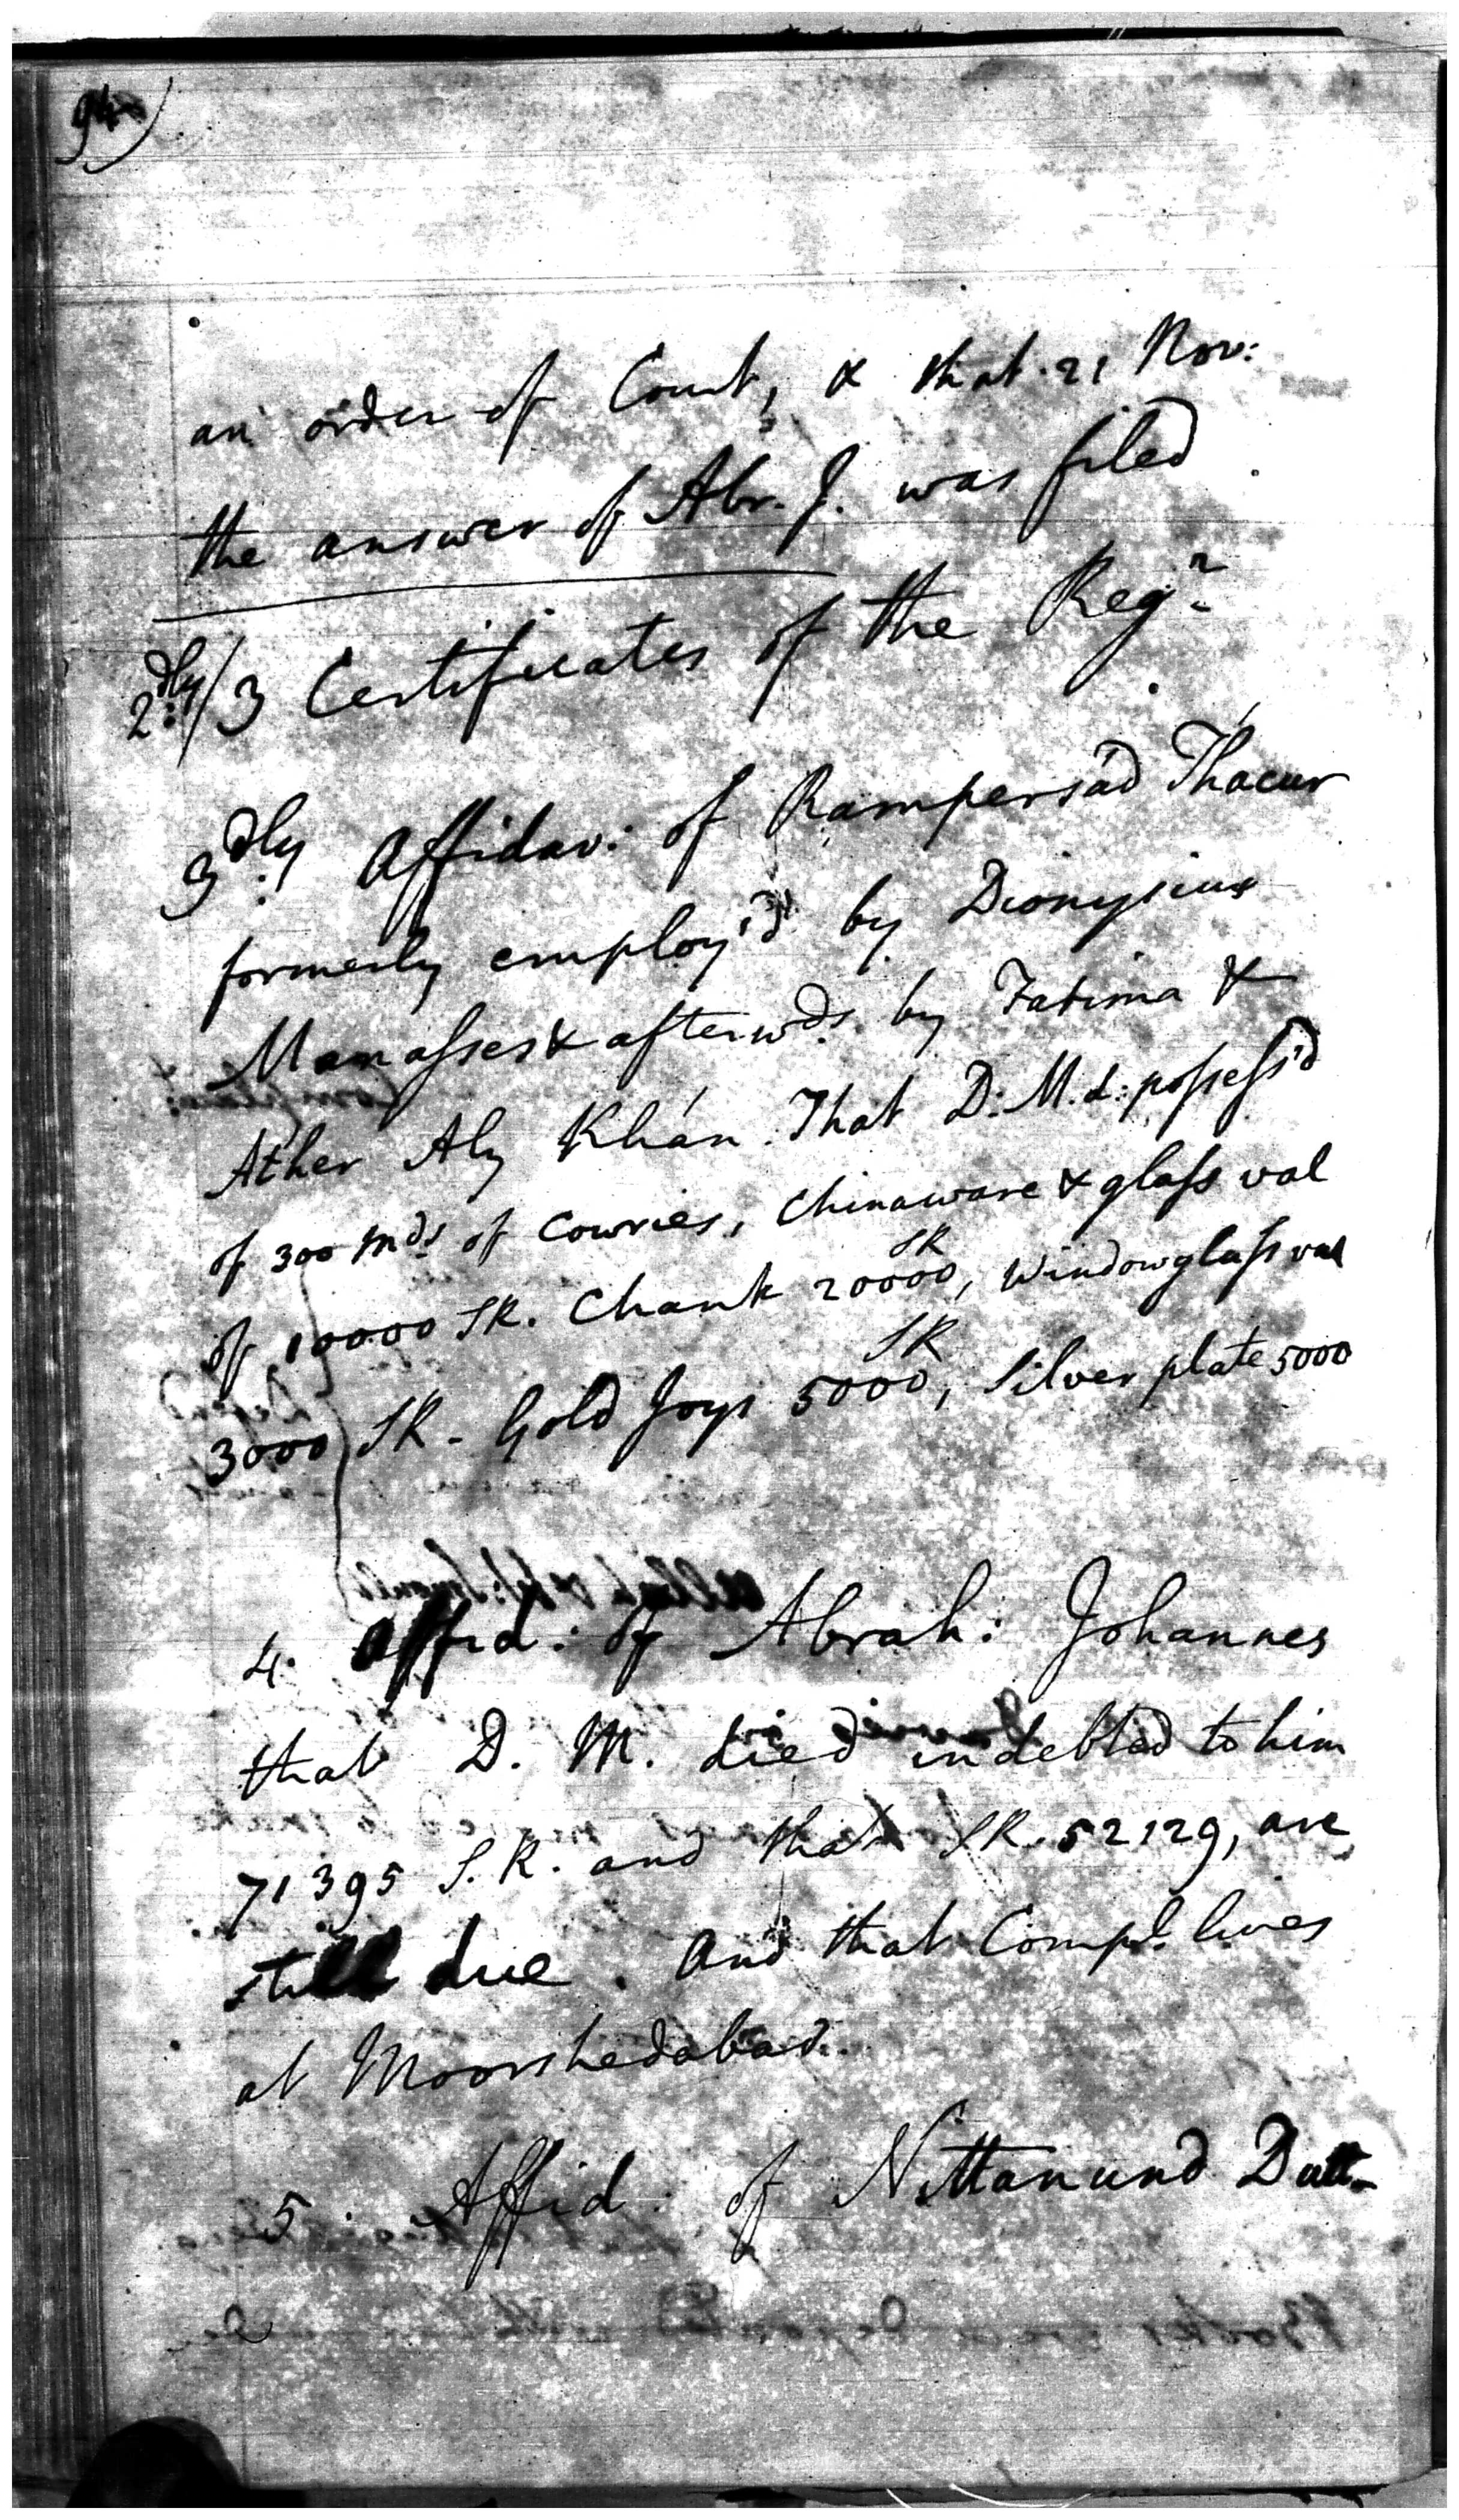 94)
an order of Court, & that 21 Nov:
the answer of Abr. J. was filed
2dly:/3 Certificates of the Regr
3dly: Affidav: of Rampersád Thácur
formerly employ'd by Dionysius
Manasses & afterwds. by Fatima &
Áther Aly Khán. That D: M. d: possess'd
of 300 mds. of Cowries, Chinaware & glass val
of 10000 SR. Chank 20000 SR, Windowglass val
3000 SR - Gold Joys 5000 SR, Silver plate 5000
4. Affid: of Abrah: Johannes
that D. M. died indebted to him
71395 S. R. and that SR. 52129, are
still due. And that Compl. lives
at Moorshedabad.
5. Affid: of Nittanund Dutt